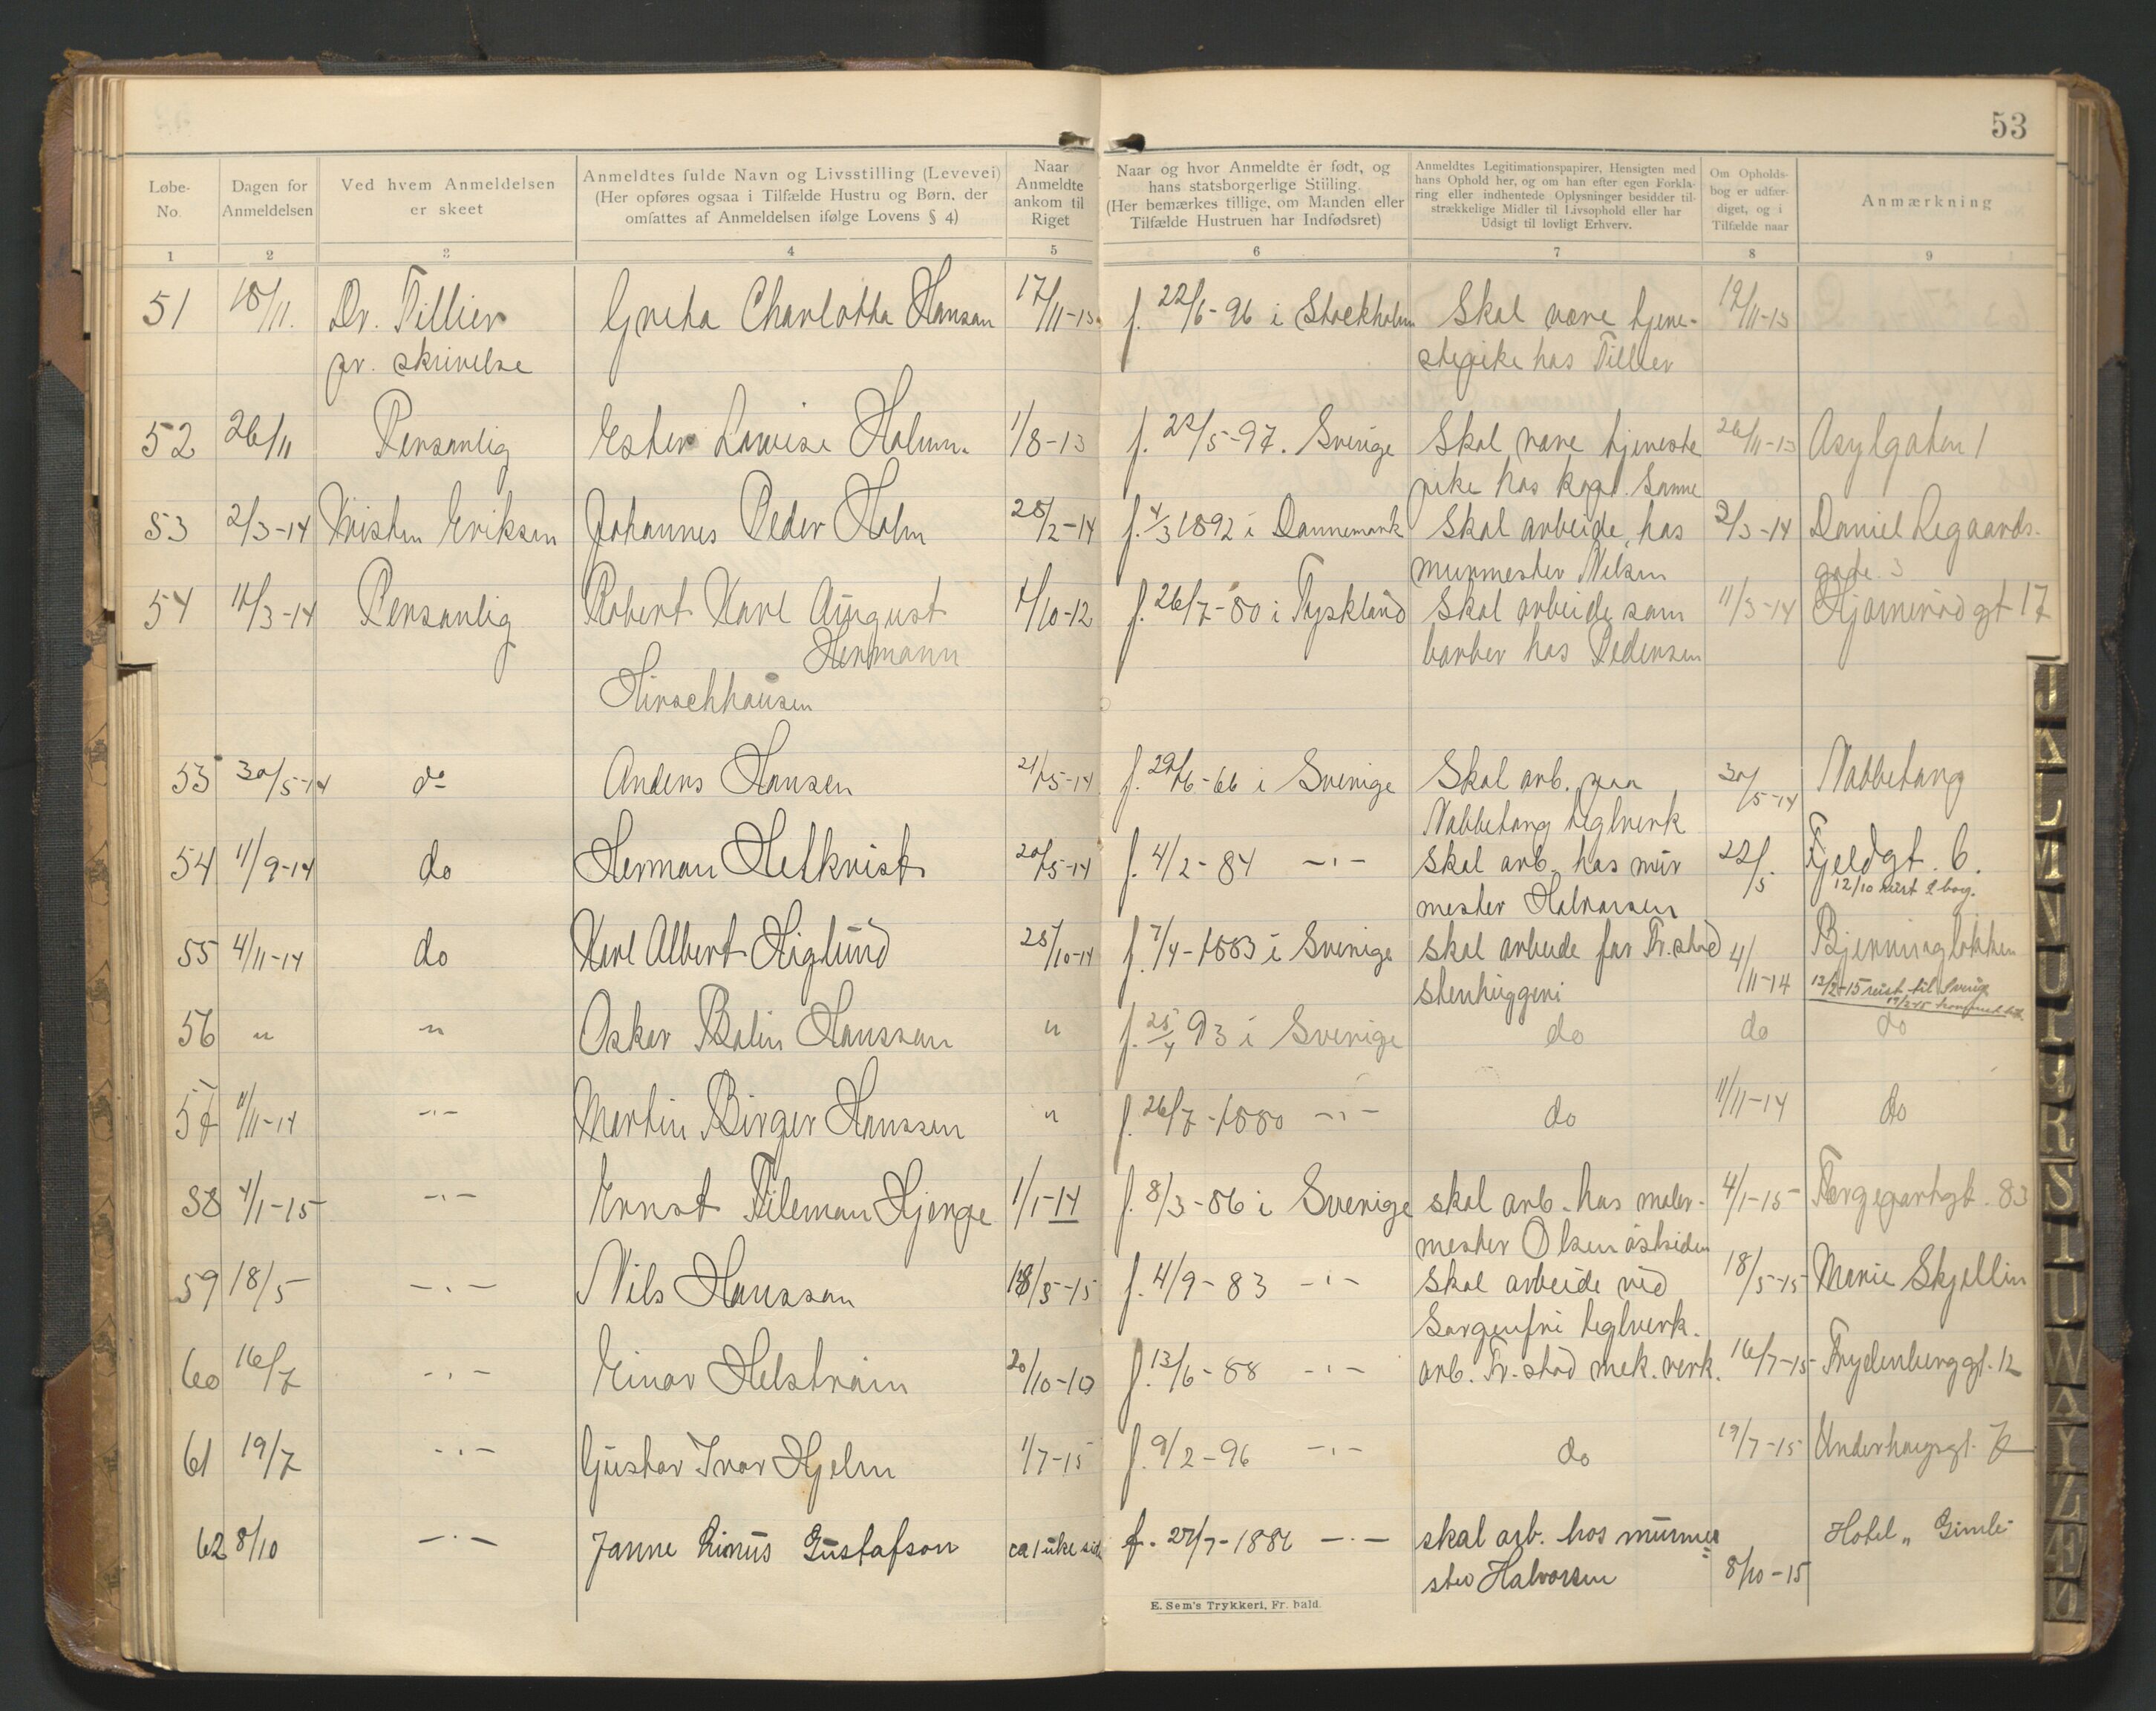 53
Løbe-No.
Dagen for Anmeldelsen
Ved hvem Anmeldelsen er skeet
Anmeldtes fulde Navn og Livsstilling (Levevei)
(Her opføres ogsaa i Tilfælde Hustru og Børn, der
omfattes af Anmeldelsen ifølge Lovens § 4)
Naar Anmeldte ankom til Riget
Naar og hvor Anmeldte er født, og
hans statsborgerlige Stilling.
(Her bemærkes tillige, om Manden eller
Tilfælde Hustruen har Indfødsret)
Anmeldtes Legitimationspapirer, Hensigten med
hans Ophold her, og om han efter egen Forkla-
ring eller indhentede Oplysninger besidder til-
strækkelige Midler til Livsophold eller har
Udsigt til lovligt Erhverv.
Om Opholds-
bog er udfær-
diget, og i
Tilfælde naar
Anmærkning
1 2 3 4 5 6 7 8 9
51 18/11. Dr. Tillier Greta Charlotta Hansan 17/11-13 f. 22/6-96 i Stockholm Skal være tjene- 19/11-13
pr. skrivelse stepike hos Tillier
52 26/11 Personlig Ester Lovise Holm. 1/8-13 f. 22/5-97. Sverige Skal være tjeneste 26/11-13 Asylgaten 1
pike hos kapt. Sanne
53 2/3-14 Kristen Eriksen Johannes Peder Holm 28/2-14 f. 4/3 1892 i Dannemark Skal arbeide hos 2/3-14 Daniel Legaards-
murmester Nilsen gade 3
54 11/3-14 Personlig Robert Karl August 1/10-12 f. 26/7-80 i Tyskland Skal arbeide som 11/3-14 Hjørnerød gt 17
Hermann barber hos Pedersen
Hirschhausen
53 30/5-14 do Anders Hansen 21/5-14 f. 29/6-66 i Sverige Skal arb. paa 30/5-14 Nabbetang
Nabbetang teglverk
54 11/9-14 do Herman Helkvist 20/5-14 f. 4/2-84 -"- Skal arb. hos mur 22/5 Fjeldgt. 6.
mester Halvorsen 12/10 reist
55 4/11-14 do Karl Albert Höglund 25/10-14 f. 7/4-1883 i Sverige skal arbeide for Fr.stad 4/11-14 Bjenningløkken
stenhuggeri 13/2-15 reist til Sverige
56 " " Oskar Bolin Hansson " f. 25/4 93 i Sverige do do do
57 11/11-14 -"- Martin Birger Hanssen " f. 26/7-1880 -"- do 11/11-14 do
58 4/1-15 -"- Ernst Tileman Hjenge 1/1-14 f. 8/3-86 i Sverige skal arb. hos maler- 4/1-15 Færgeportgt. 83
mester Olsen østsiden
59 18/5 -"- Nils Hansson 18/5-15 f. 4/9-83 -"- Skal arbeide ved 18/5-15 Marie Skjellin
Sorgenfri teglverk.
60 16/7 -"- Einar Helström 20/10-10 f. 13/6-88 -"- arb. Fr.stad mek. verk. 16/7-15 Frydenberggt. 12
61 19/7 -"- Gustav Ivar Hjelm 1/7-15 f. 9/2-96 -"- do 19/7-15 Underhaugsgt. 7
62 8/10 -"- Janne Linus Gustafson ca 1 uke siden f. 27/7-1886 -"- skal arb. hos murme= Hotel "Gimle"
ster Halvorsen 8/10-15
E. Sem's Trykkeri, Fr. hald.
J
A
L
M
N
O
P
Q
R
S
T
U
W
A
Y
Z
Æ
Ø